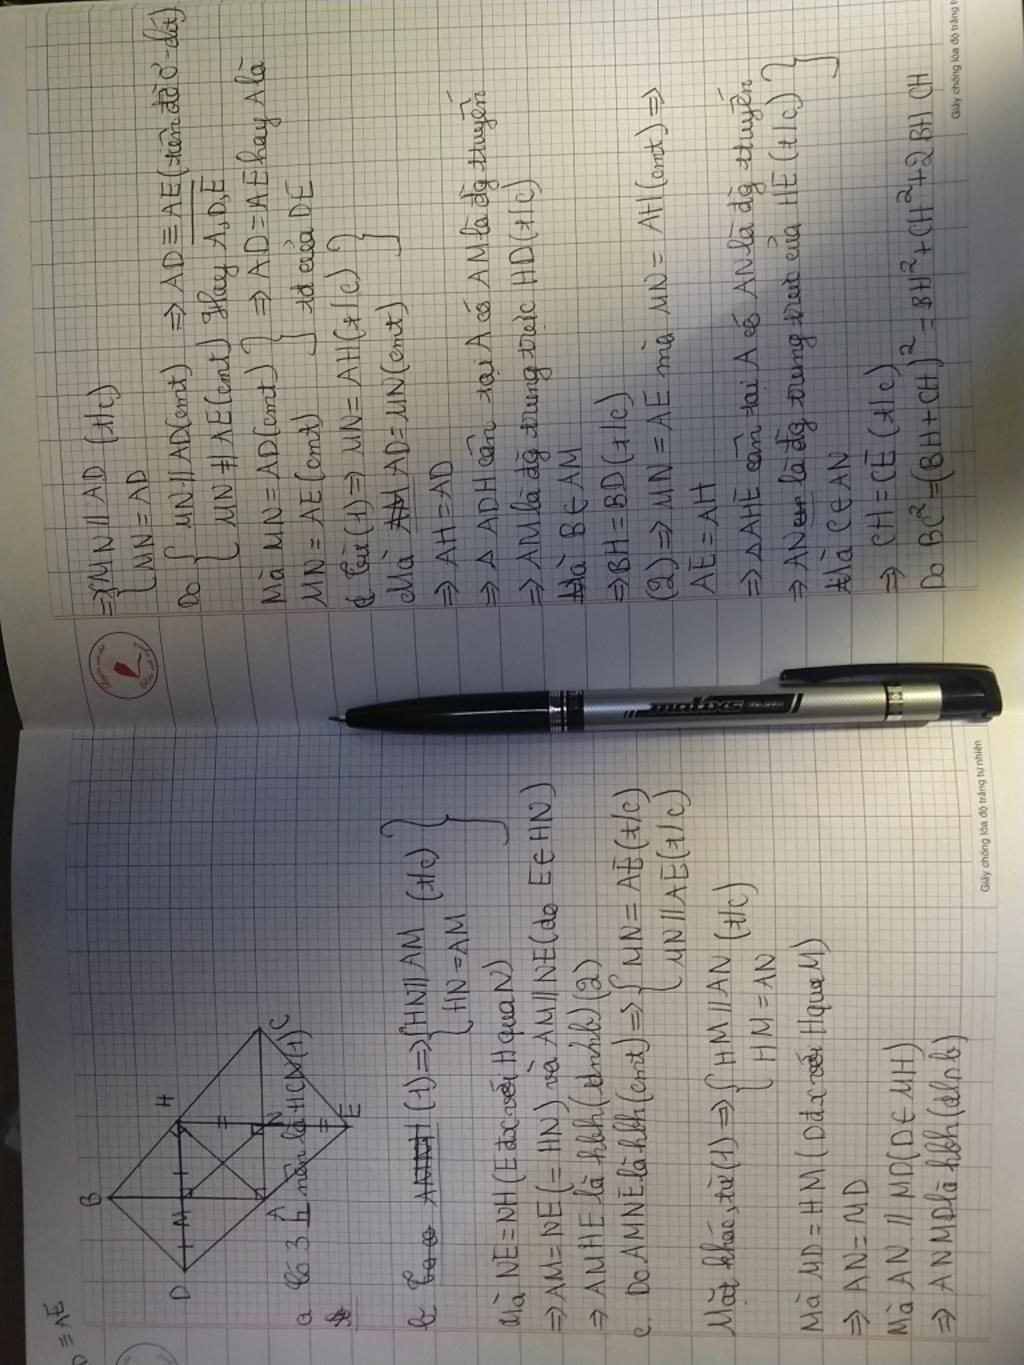 ≡ AE
B
D
M
H
A
N
C
E
a. Có 3 nên là HCN(1)
b. (1) ⇒ { HN // AM (t/c)
HN = AM }
Mà NE = NH (E đx với H qua N)
⇒ AM = NE (= HN) và AM // NE (do E ∈ HN)
⇒ AMHE là hbh (dhnb) (2)
c. Do AMNE là hbh (cmt) ⇒ { MN = AE (t/c)
MN // AE (t/c)
Mặt khác, từ (1) ⇒ { HM // AN (t/c)
HM = AN
Mà MD = HM (D đx với H qua M)
⇒ AN = MD
Mà AN // MD (D ∈ MH)
⇒ ANMD là hbh (dhnb)
Giấy chống lóa độ trắng tự nhiên
⇒ { MN // AD (t/c)
MN = AD
Do { MN // AD (cmt) ⇒ AD ≡ AE (tiên đề Ơ-clit)
MN // AE (cmt) Hay A, D, E
Mà MN = AD (cmt) } ⇒ AD = AE hay A là
MN = AE (cmt) } tđ của DE
Từ (1) ⇒ MN = AH (t/c) }
Mà AD = MN (cmt) }
⇒ AH = AD
⇒ Δ ADH cân tại A có AM là đg thuyến
⇒ AM là đg trung trực HD (t/c)
Mà B ∈ AM
⇒ BH = BD (t/c)
(2) ⇒ MN = AE mà MN = AH (cmt) ⇒
AE = AH
⇒ Δ AHE cân tại A có AN là đg thuyến
⇒ AN là đg trung trực của HE (t/c) }
Mà C ∈ AN }
⇒ CH = CE (t/c)
Do BC² = (BH + CH)² = BH² + CH² + 2 BH CH
Giấy chống lóa độ trắng t
matixs